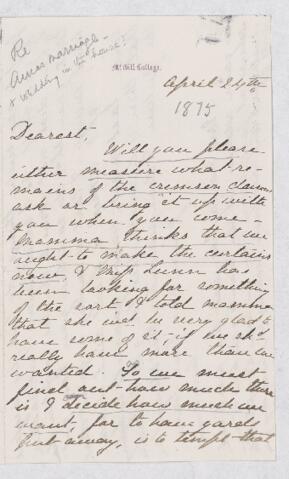 Re
Anna's marriage -
& wedding in the house?
McGill College.
April 24th
1875
Dearest,
Will you please
either measure what re-
mains of the crimson damask
or bring it up with
you when you come -
Mamma thinks that we
ought to make the curtains
now, & Miss Lunn has
been looking for something
of the sort & I told mamma
that she wd be very glad to
have some of it, if we shd
really have more than we
wanted. So we must
find out how much there
is & decide how much we
want, for to have yards
put away, is to tempt that